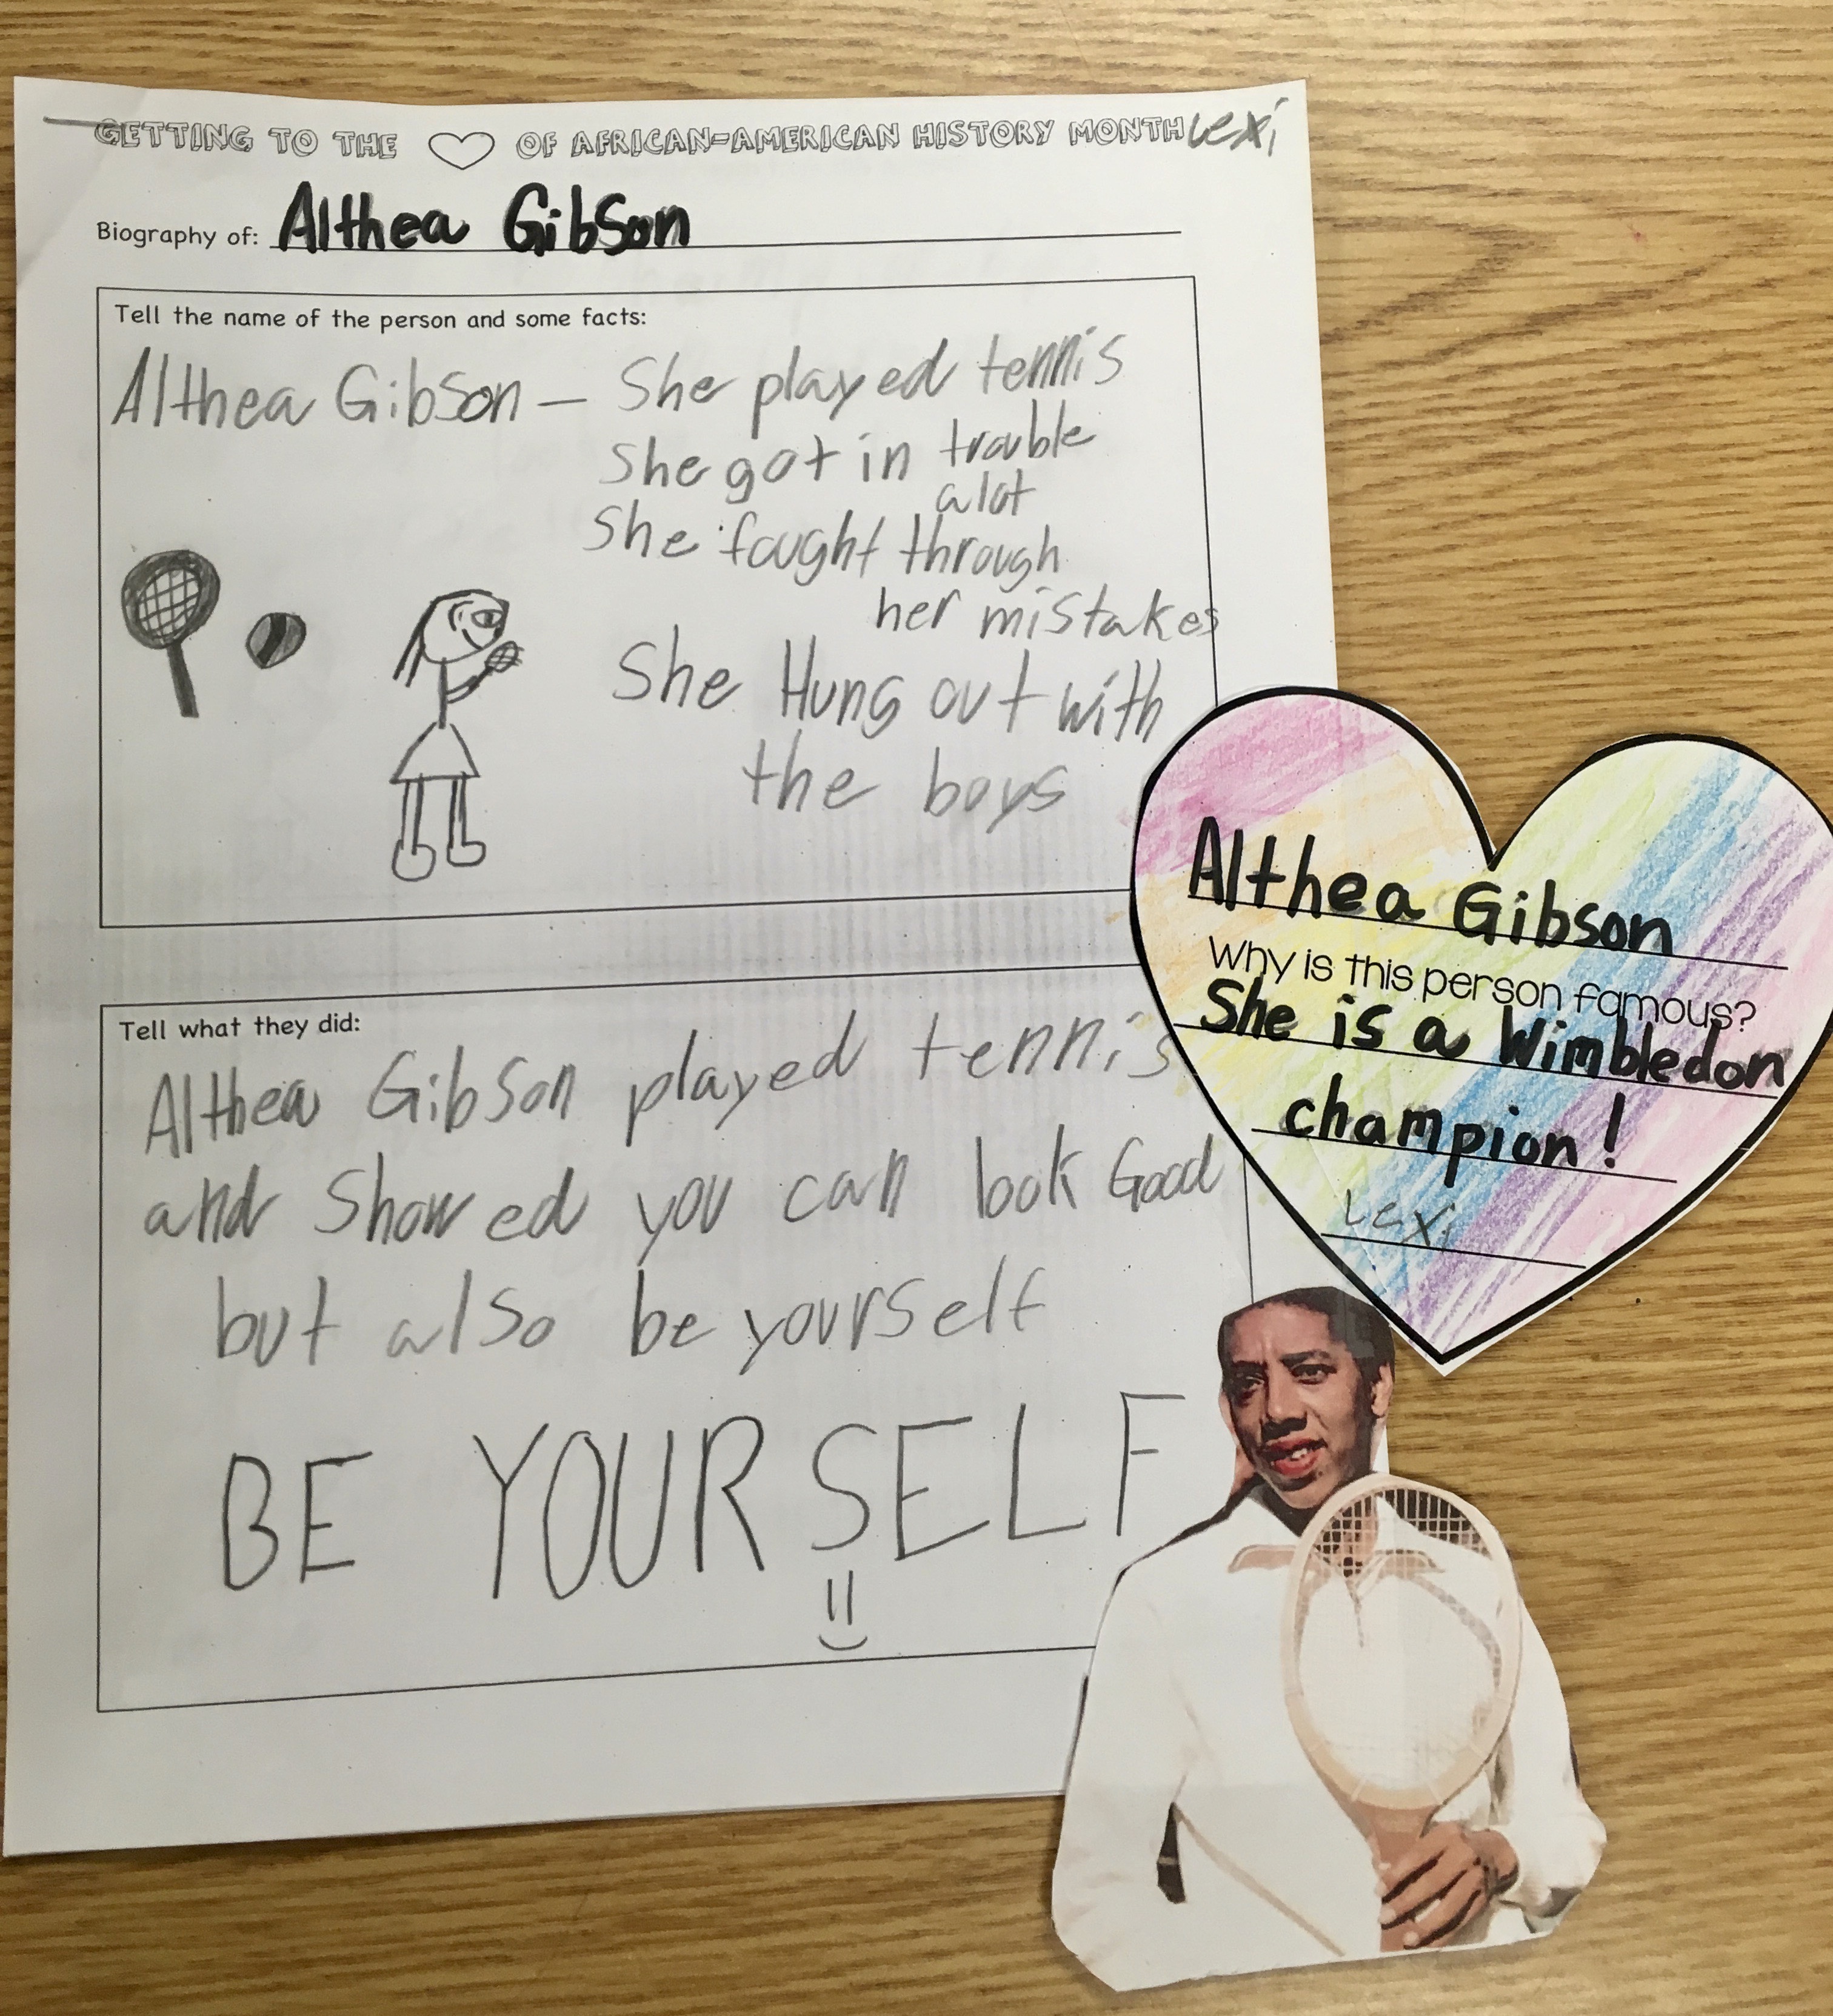 GETTING TO THE OF AFRICAN-AMERICAN HISTORY MONTH Lexi
Biography of: Althea Gibson
Tell the name of the person and some facts:
Althea Gibson - She played tennis
She got in trouble
a lot
She fought through
her mistakes
She Hung out with
the boys
Tell what they did:
Althea Gibson played tennis
and showed you can look Good
but also be yourself
BE YOURSELF
Althea Gibson
Why is this person famous?
She is a Wimbledon
champion!
Lexi